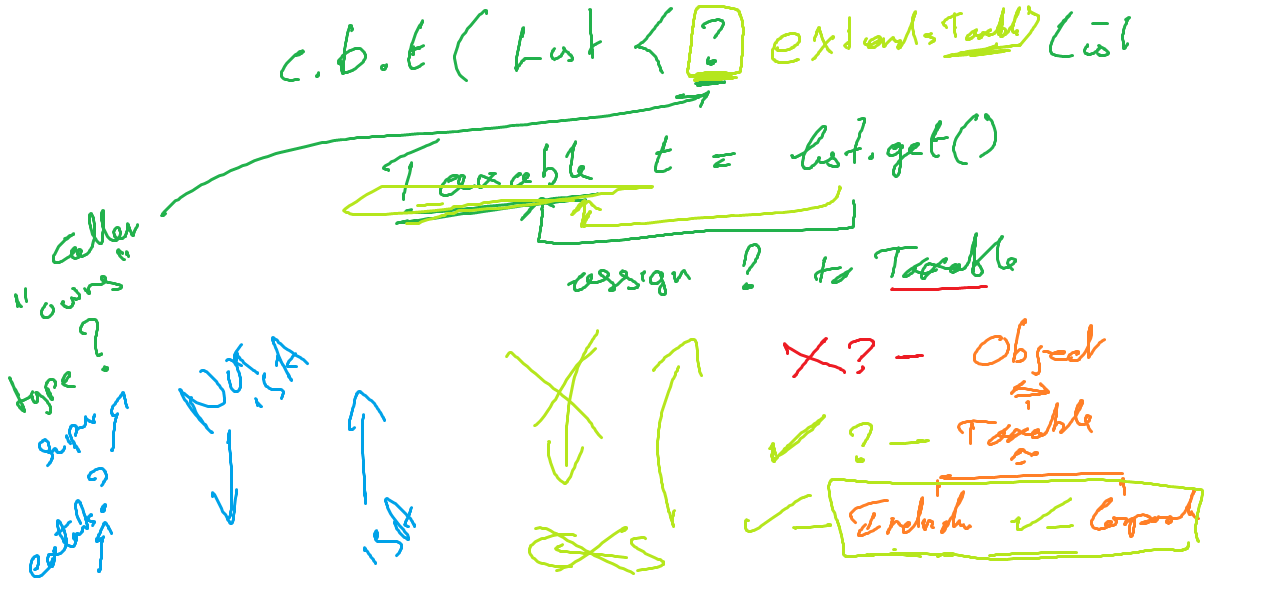 c.b.t ( List < ? extends Taxable> list
Taxable t = list.get()
assign ? to Taxable
caller
"owns"
type ?
super
extends ?
NOT ISA
ISA
? - Object
? - Taxable
Individu